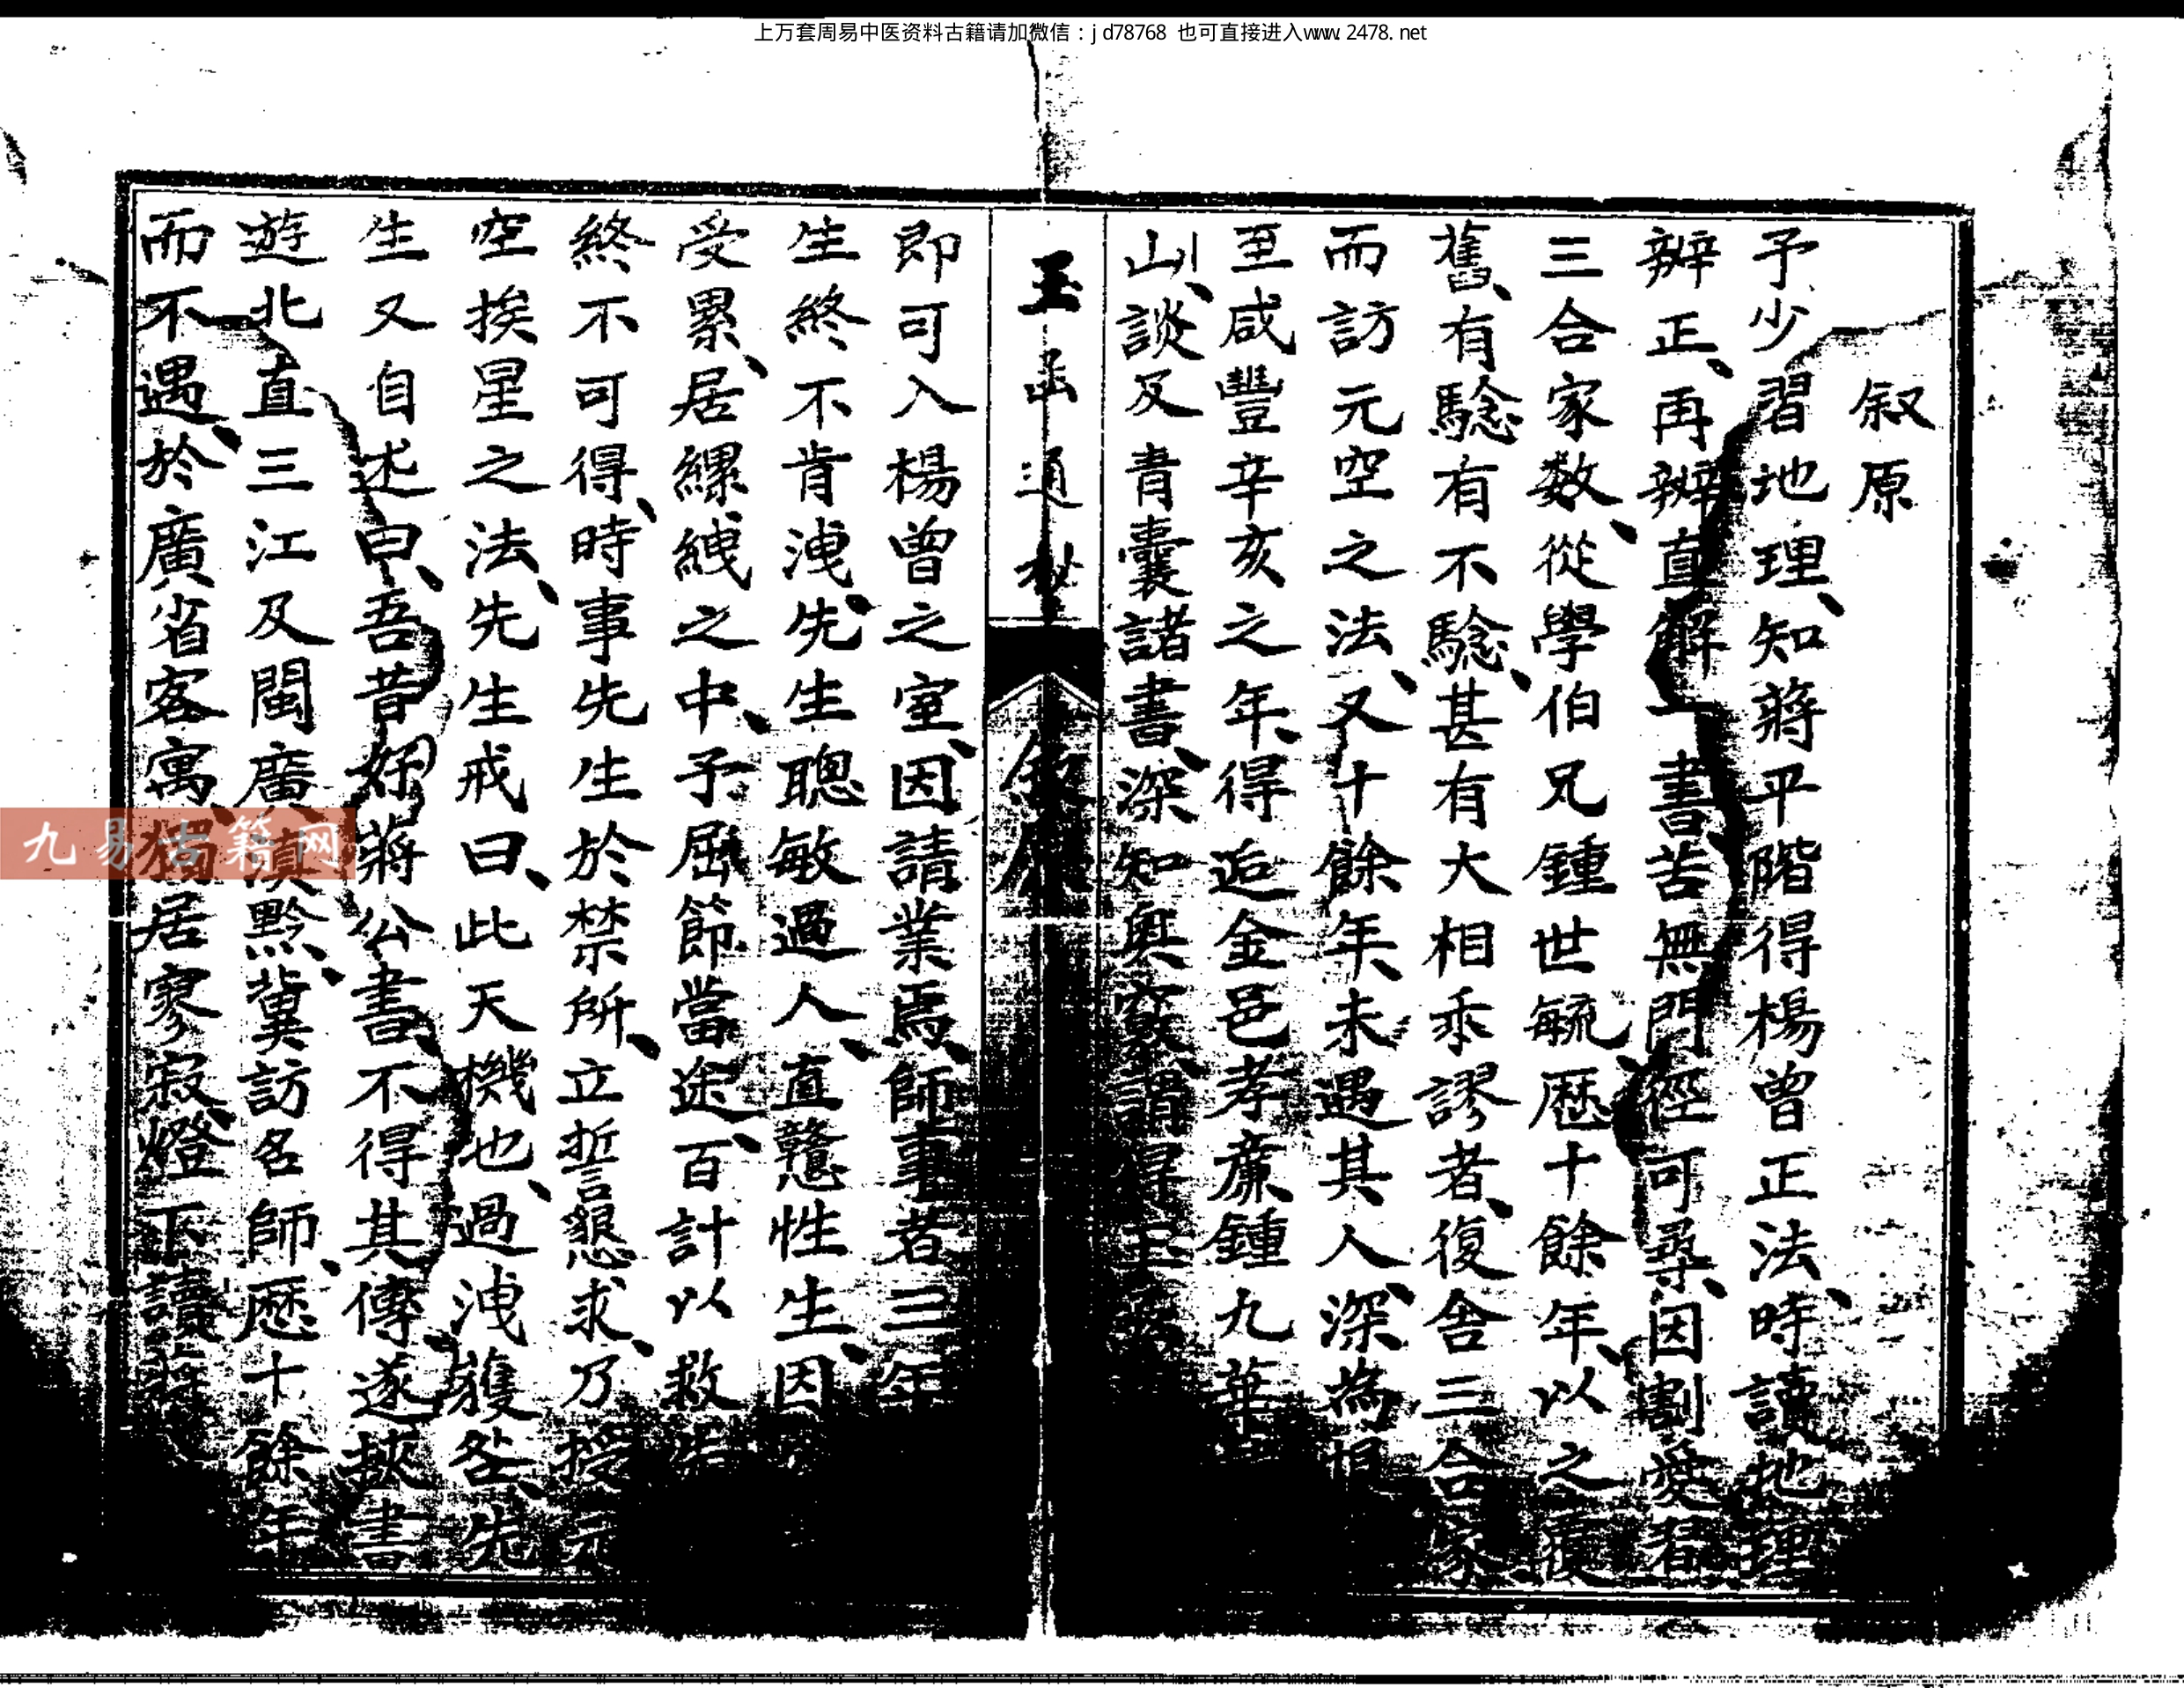 上万套周易中医资料古籍请加微信：jd78768 也可直接进入www.2478.net
叙原
予少習地理、知蔣平階得楊曾正法、時讀地理
辨正、再辨直解 書苦無門徑可尋、因割愛
三合家数、從學伯兄鍾世毓、歷十餘年、以之覆
舊、有騐有不騐、甚有大相乖謬者、復舍三合家
而訪元空之法、又十餘年、未遇其人、深為恨
至咸豐辛亥之年、得追金邑孝廉鍾九華
山、談及青囊諸書、深知奥窔、謂得
玉函通秘
叙原
即可入楊曾之室、因請業焉、師事者三年
生終不肯洩、先生聰敏過人、直戇性生、因
受累、居縲絏之中、予屈節當途、百計以救
終不可得、時事先生於禁所、立誓懇求、乃授元
空挨星之法、先生戒曰、此天機也、過洩獲咎、先
生又自述曰、吾昔好蔣公書、不得其傳、遂挾書
遊北直三江及閩廣滇黔、冀訪名師、歷十餘年
而不遇、於廣省客寓、獨居寥寂、燈下讀蔣
九易古籍网